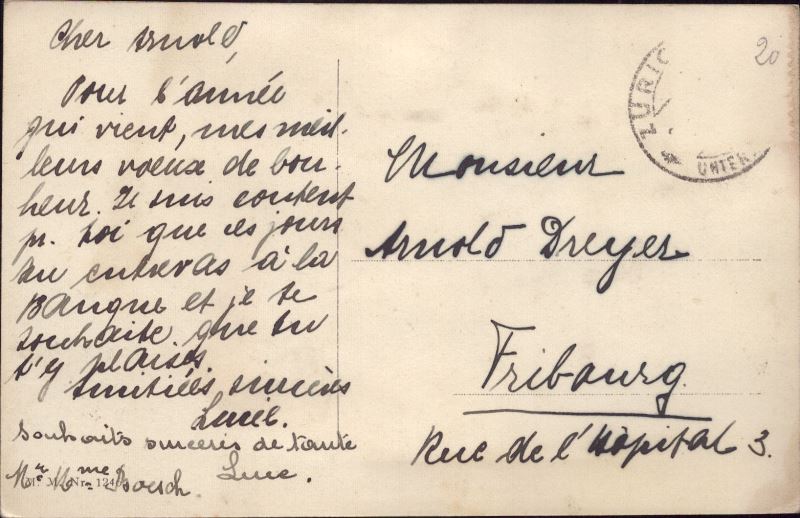 Cher Arnold,
Pour l'année
qui vient, mes meil-
leurs voeux de bon-
heur. Je suis content
pr. toi que ces jours
tu entreras à la
Banque et je te
souhaite que tu
t'y plaises.
Amitiés sincères
souhaits sincères de tante
Luc.
Mr. Mme Boesch.
M. M. Nr. 124
20
ZURIC
UNTER
Monsieur
Arnold Dreyer
Fribourg
Rue de l'Hôpital 3.